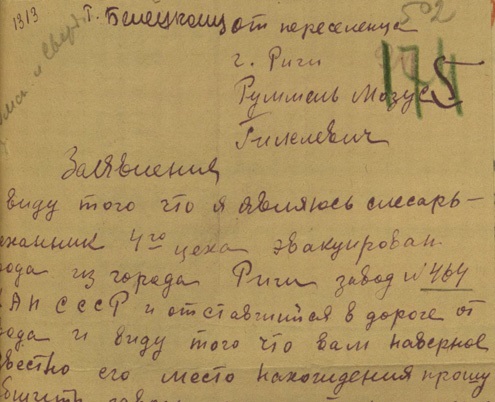 1313 Г. Белецкому от переселенца 502
г. Риги 174
Руммель Мозус
Гилелевич
Заявления
виду того что я являюсь слесарь-
ханник 4го цеха эвакуирован
вода из города Риги завод №464
АП СССР и отставшийся в дороге от
вода и виду того что вам наверное
вестно его место нахождения прошу